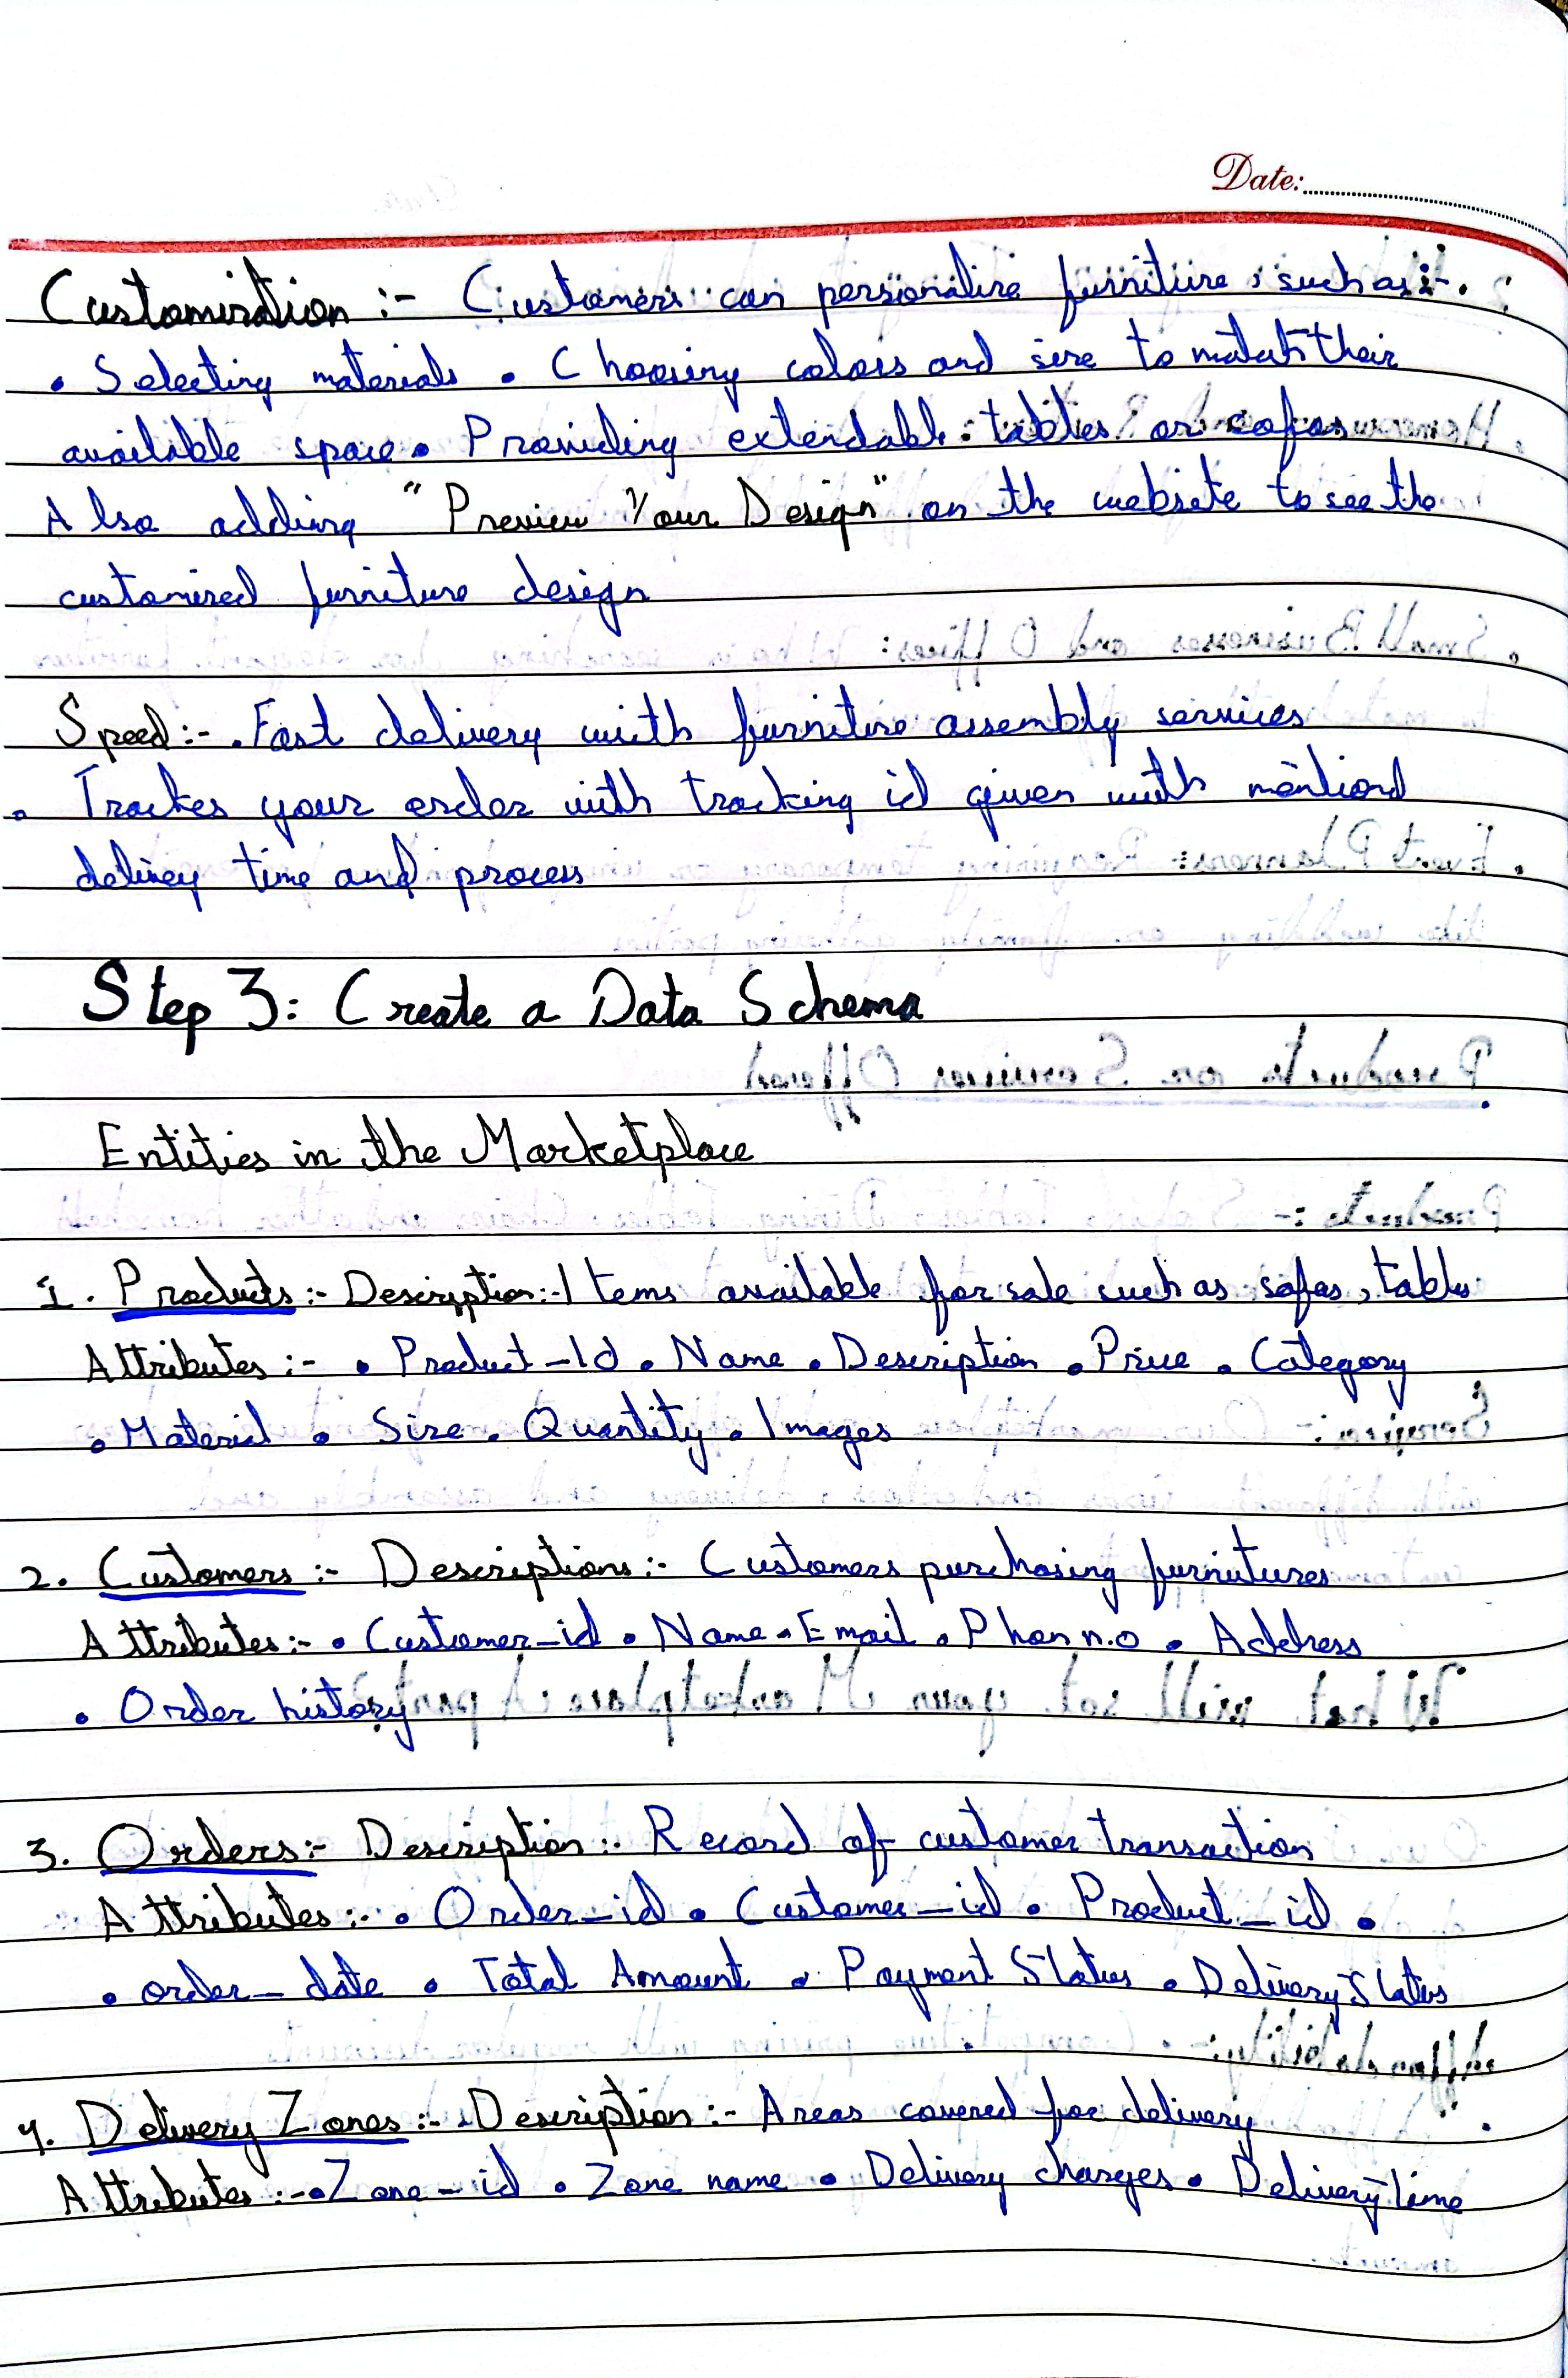 Date:
Customization :- Customers can personalize furniture, such as :-
• Selecting materials • Choosing colors and size to match their
available space • Providing extendable tables or sofas
Also adding "Preview Your Design" on the website to see the
customized furniture design
Speed :- • Fast delivery with furniture assembly services
• Trackes your order with tracking id given with mentiond
delivey time and process
Step 3: Create a Data Schema
Entities in the Marketplace
1. Products :- Description :- Items available for sale such as sofas, tables
Attributes :- • Product-Id • Name • Description • Price • Category
• Material • Size • Quantity • Images
2. Customers :- Descriptions :- Customers purchasing furnitures
Attributes :- • Customer_id • Name • Email • Phon n.o • Address
• Order history
3. Orders :- Description :- Record of customer transaction
Attributes :- • Order_id • Customer_id • Product_id •
• order_date • Total Amount • Payment Status • Delivery Status
4. Delivery Zones :- Description :- Areas covered for delivery
Attributes :- • Zone-id • Zone name • Delivery charges • Delivery time